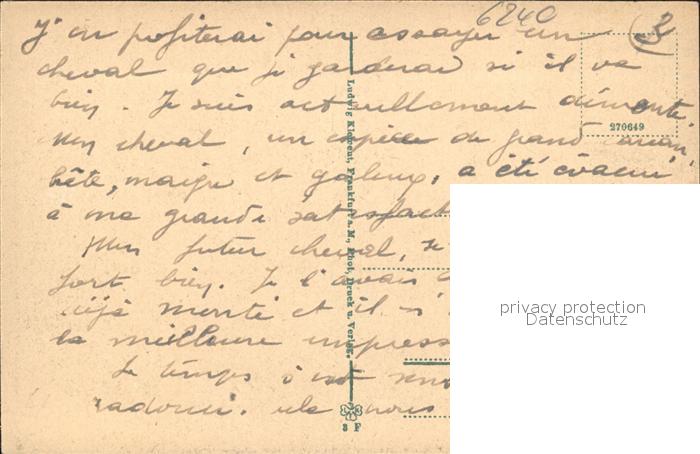 6240
3
J'en profiterai pour essayer un
cheval que je garderai si il va
bien. Je suis actuellement démonté.
Mon cheval, un espèce de grand
bête, maigre et galeux, a été évacué
à ma grande satisfact
Mon futur cheval, 
fort bien. Je l'avais
déjà monté et il m'
la meilleure impress
Le temps s'est
radouci. cela nous
270649
Ludwig Klement, Frankfurt a. M., Phot. Druck u. Verlag.
3 F
privacy protection
Datenschutz